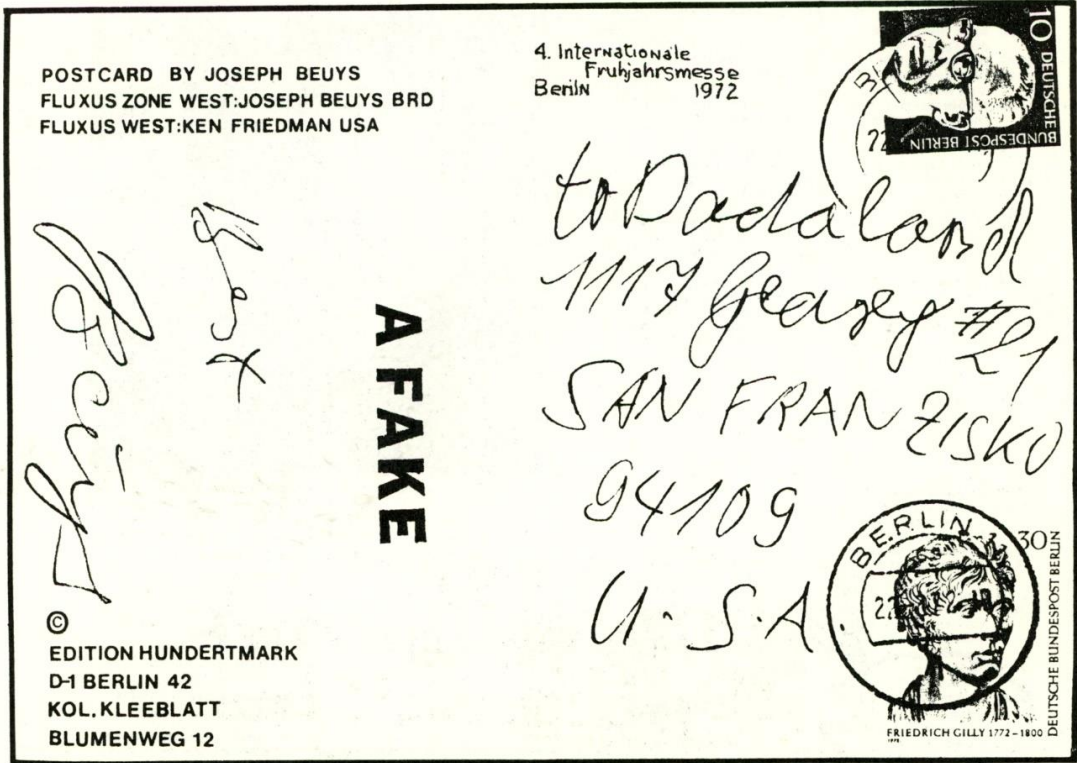 POSTCARD BY JOSEPH BEUYS
FLUXUS ZONE WEST:JOSEPH BEUYS BRD
FLUXUS WEST:KEN FRIEDMAN USA
Beuys
A FAKE
©
EDITION HUNDERTMARK
D-1 BERLIN 42
KOL. KLEEBLATT
BLUMENWEG 12
4. Internationale
Fruhjahrsmesse
Berlin 1972
to Dadaland
1117 Geary #21
SAN FRANZISKO
94109
U.S.A.
10 DEUTSCHE
BUNDESPOST BERLIN
BERLIN
30
DEUTSCHE BUNDESPOST BERLIN
FRIEDRICH GILLY 1772-1800